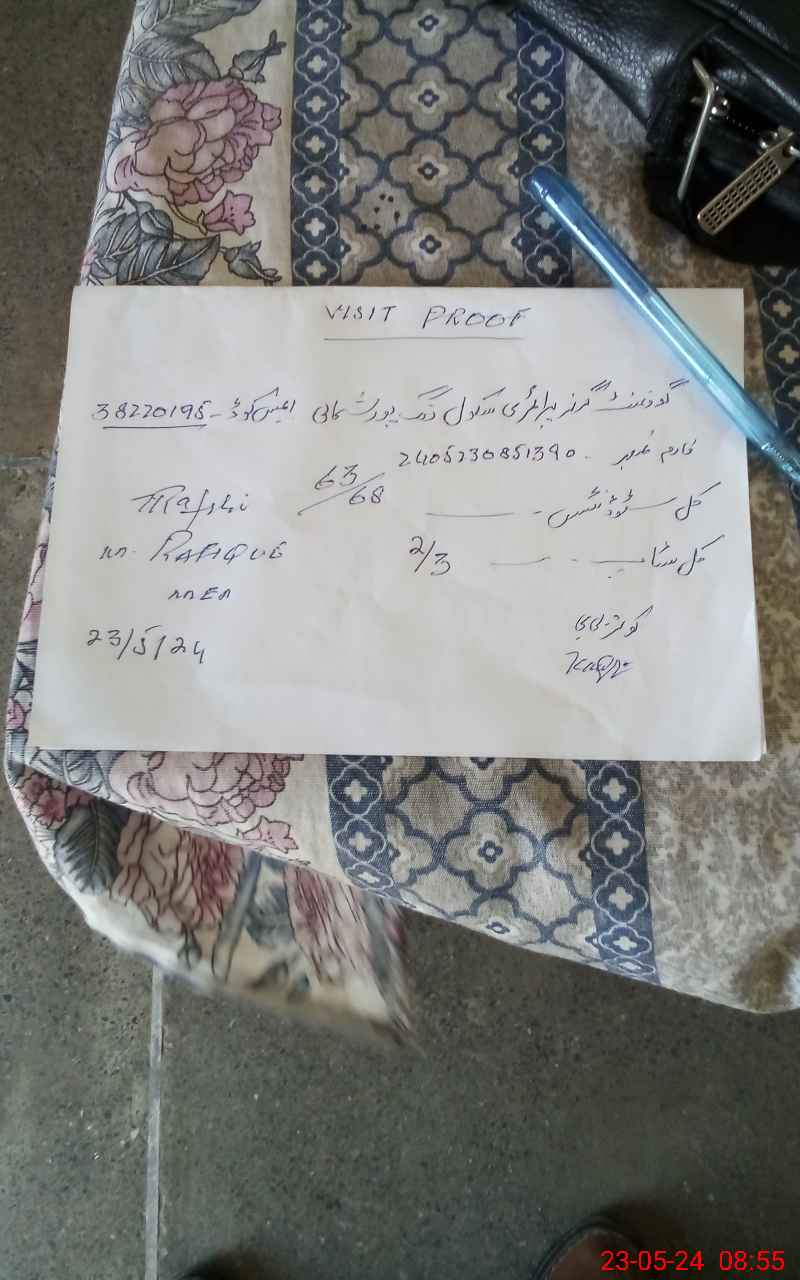 VISIT PROOF
گورنمنٹ گرلز پرائمری سکول رنگ پور شمالی ایمس کوڈ - 38220195
فارم نمبر - 2405230851390
کل سٹوڈنٹس - 63/68
کل سٹاف - 2/3
M. RAFIQUE
MEA
23/5/24
کوثر بی بی
23-05-24 08:55